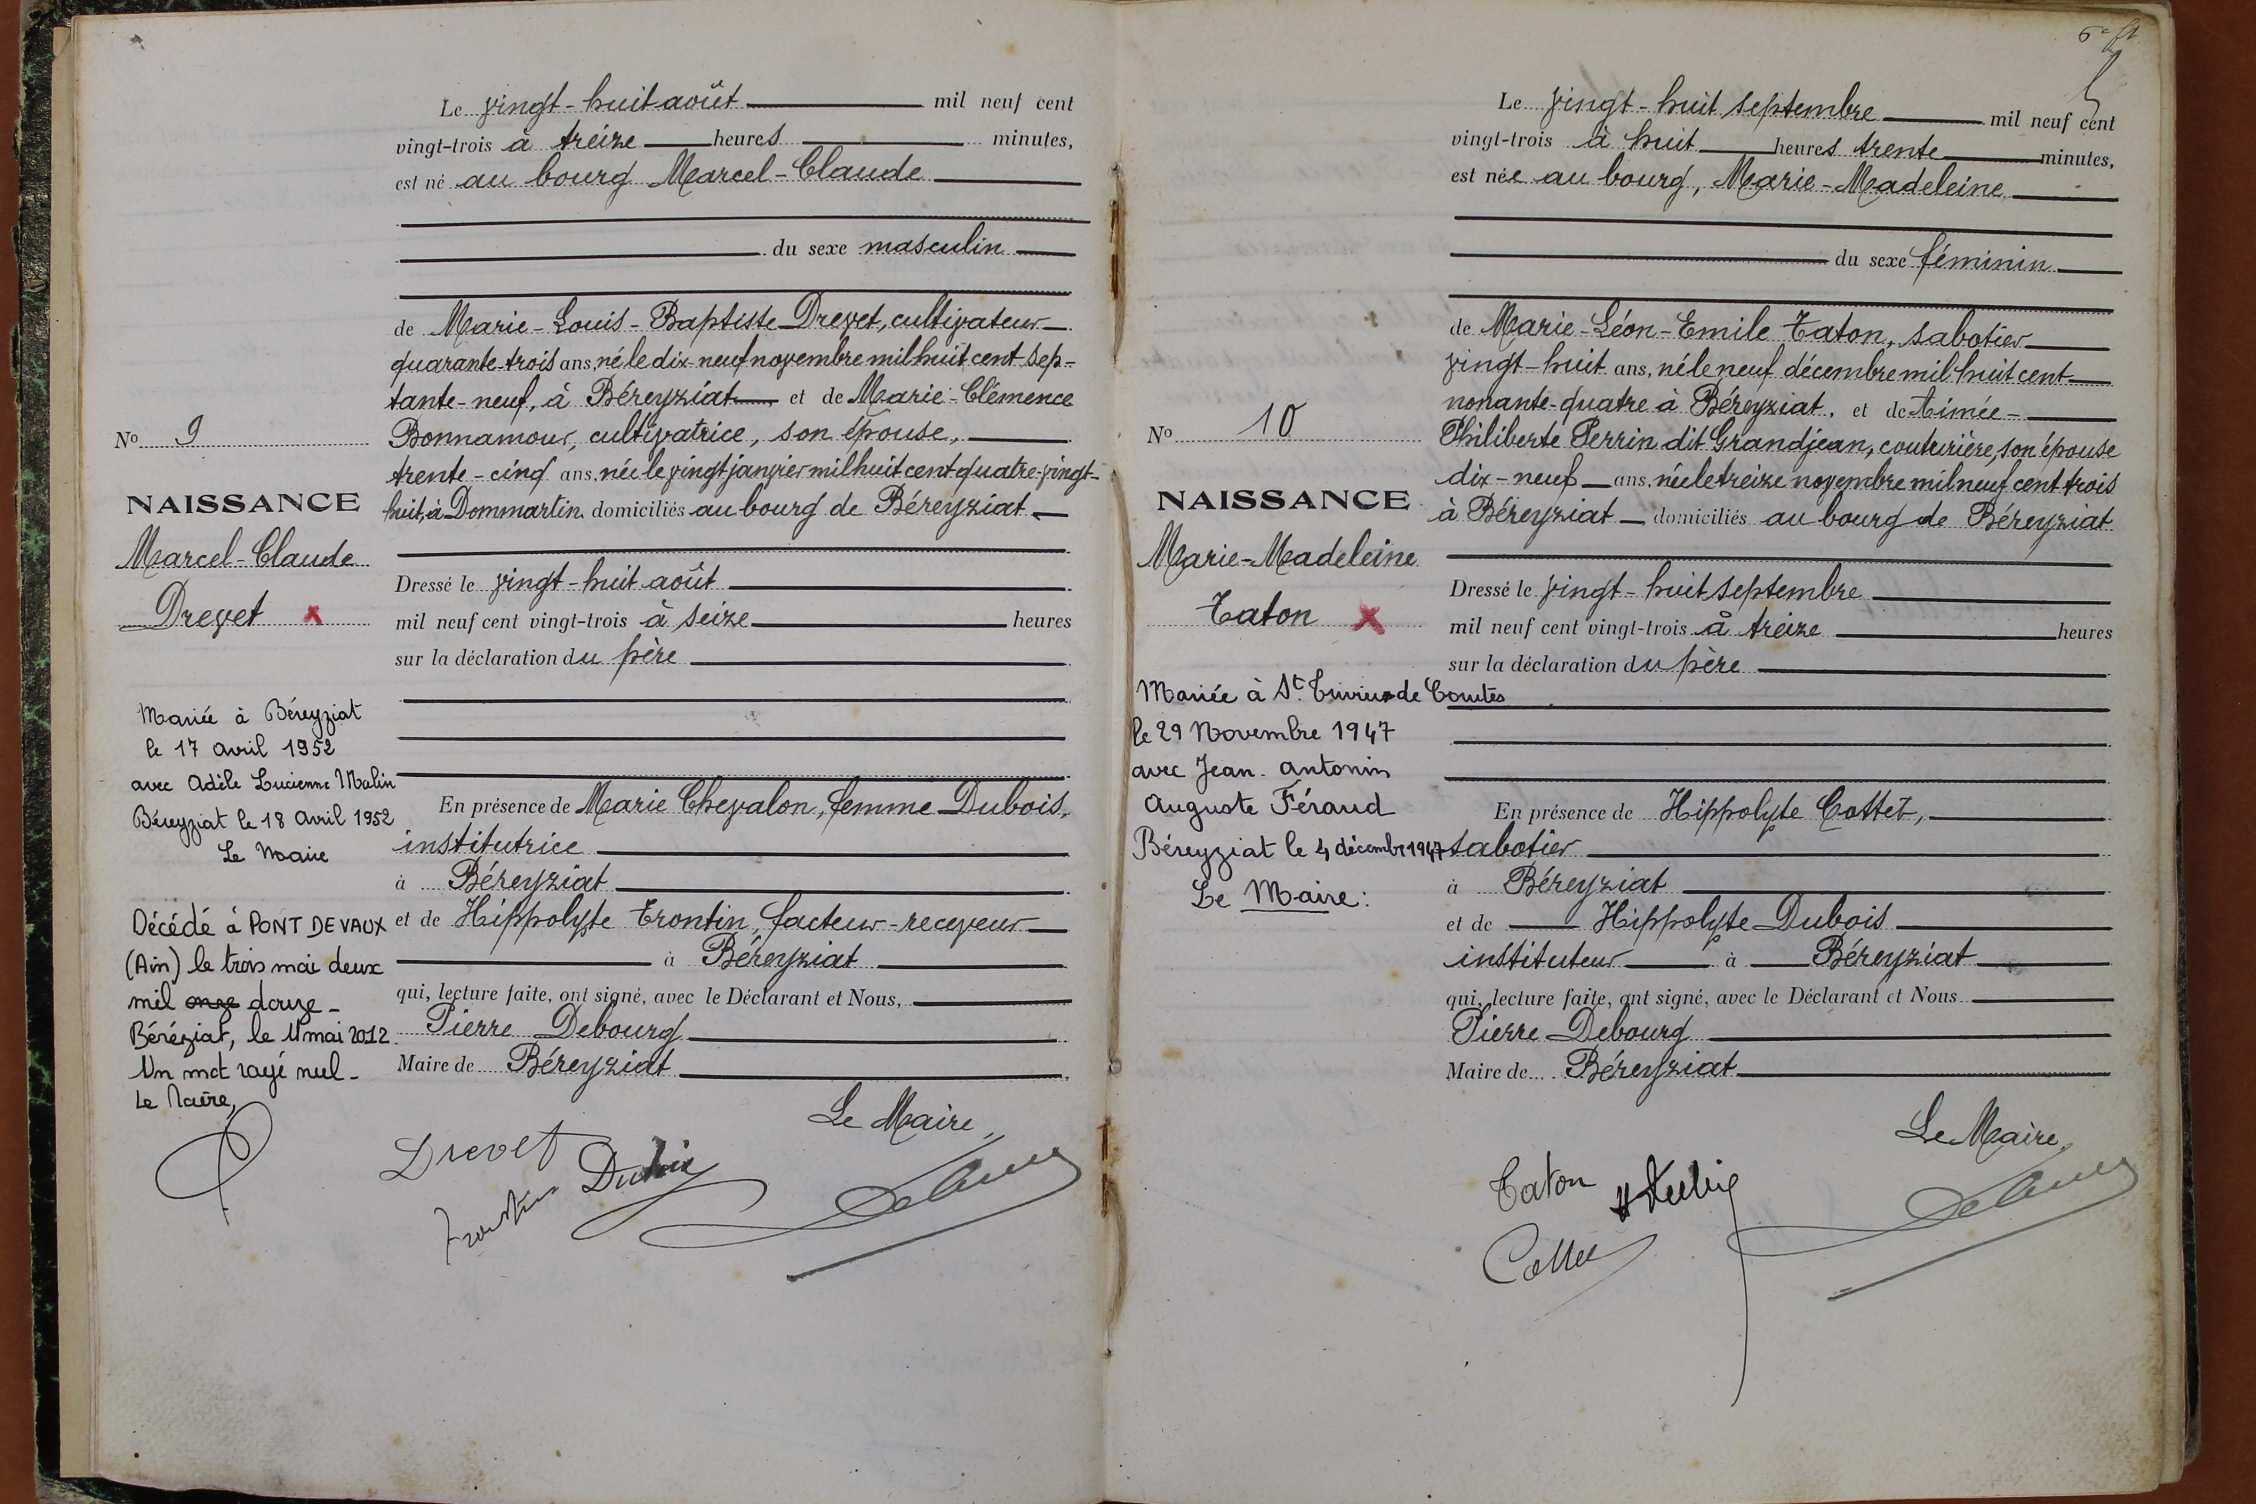 Le vingt-huit août mil neuf cent
vingt-trois à treize heures minutes,
est né au bourg Marcel-Claude
du sexe masculin
de Marie-Louis-Baptiste Drevet, cultivateur
quarante-trois ans, né le dix-neuf novembre mil huit cent sep-
tante-neuf, à Béreyziat et de Marie-Clémence
Bonnamour, cultivatrice, son épouse,
trente-cinq ans, née le vingt janvier mil huit cent quatre-vingt-
huit, à Dommartin domiciliés au bourg de Béreyziat
Dressé le vingt-huit août
mil neuf cent vingt-trois à seize heures
sur la déclaration du père
En présence de Marie Chevalon, femme Dubois,
institutrice
à Béreyziat
et de Hippolyte Trontin, facteur-receveur
à Béreyziat
qui, lecture faite, ont signé, avec le Déclarant et Nous,
Pierre Debourg
Maire de Béreyziat
Le Maire,
Drevet
Trontin Dubois
No 9
NAISSANCE
Marcel-Claude
Drevet x
Mariée à Béreyziat
le 17 avril 1952
avec Adèle Lucienne Malin
Béreyziat le 18 Avril 1952
Le Maire
Décédé à PONT DE VAUX
(Ain) le trois mai deux
mil onze douze-
Béréziat, le 11 mai 2012
Un mot rayé nul-
Le Maire,
Le vingt-huit septembre mil neuf cent
vingt-trois à huit heures trente minutes,
est née au bourg, Marie-Madeleine
du sexe féminin
de Marie-Léon-Emile Taton, sabotier
vingt-huit ans, né le neuf décembre mil huit cent
nonante-quatre à Béreyziat, et de Aimée-
Philiberte Perrin dit Grandjean, couturière, son épouse
dix-neuf ans, née le treize novembre mil neuf cent trois
à Béreyziat domiciliés au bourg de Béreyziat
Dressé le vingt-huit septembre
mil neuf cent vingt-trois à treize heures
sur la déclaration du père
En présence de Hippolyte Cottet,
sabotier
à Béreyziat
et de Hippolyte Dubois
instituteur à Béreyziat
qui, lecture faite, ont signé, avec le Déclarant et Nous
Pierre Debourg
Maire de Béreyziat
Le Maire,
Taton
Cottet
No 10
NAISSANCE
Marie-Madeleine
Taton x
Mariée à St. Trivier de Courtes
le 29 Novembre 1947
avec Jean-Antonin
Auguste Féraud
Béreyziat le 4 décembre 1947
Le Maire: